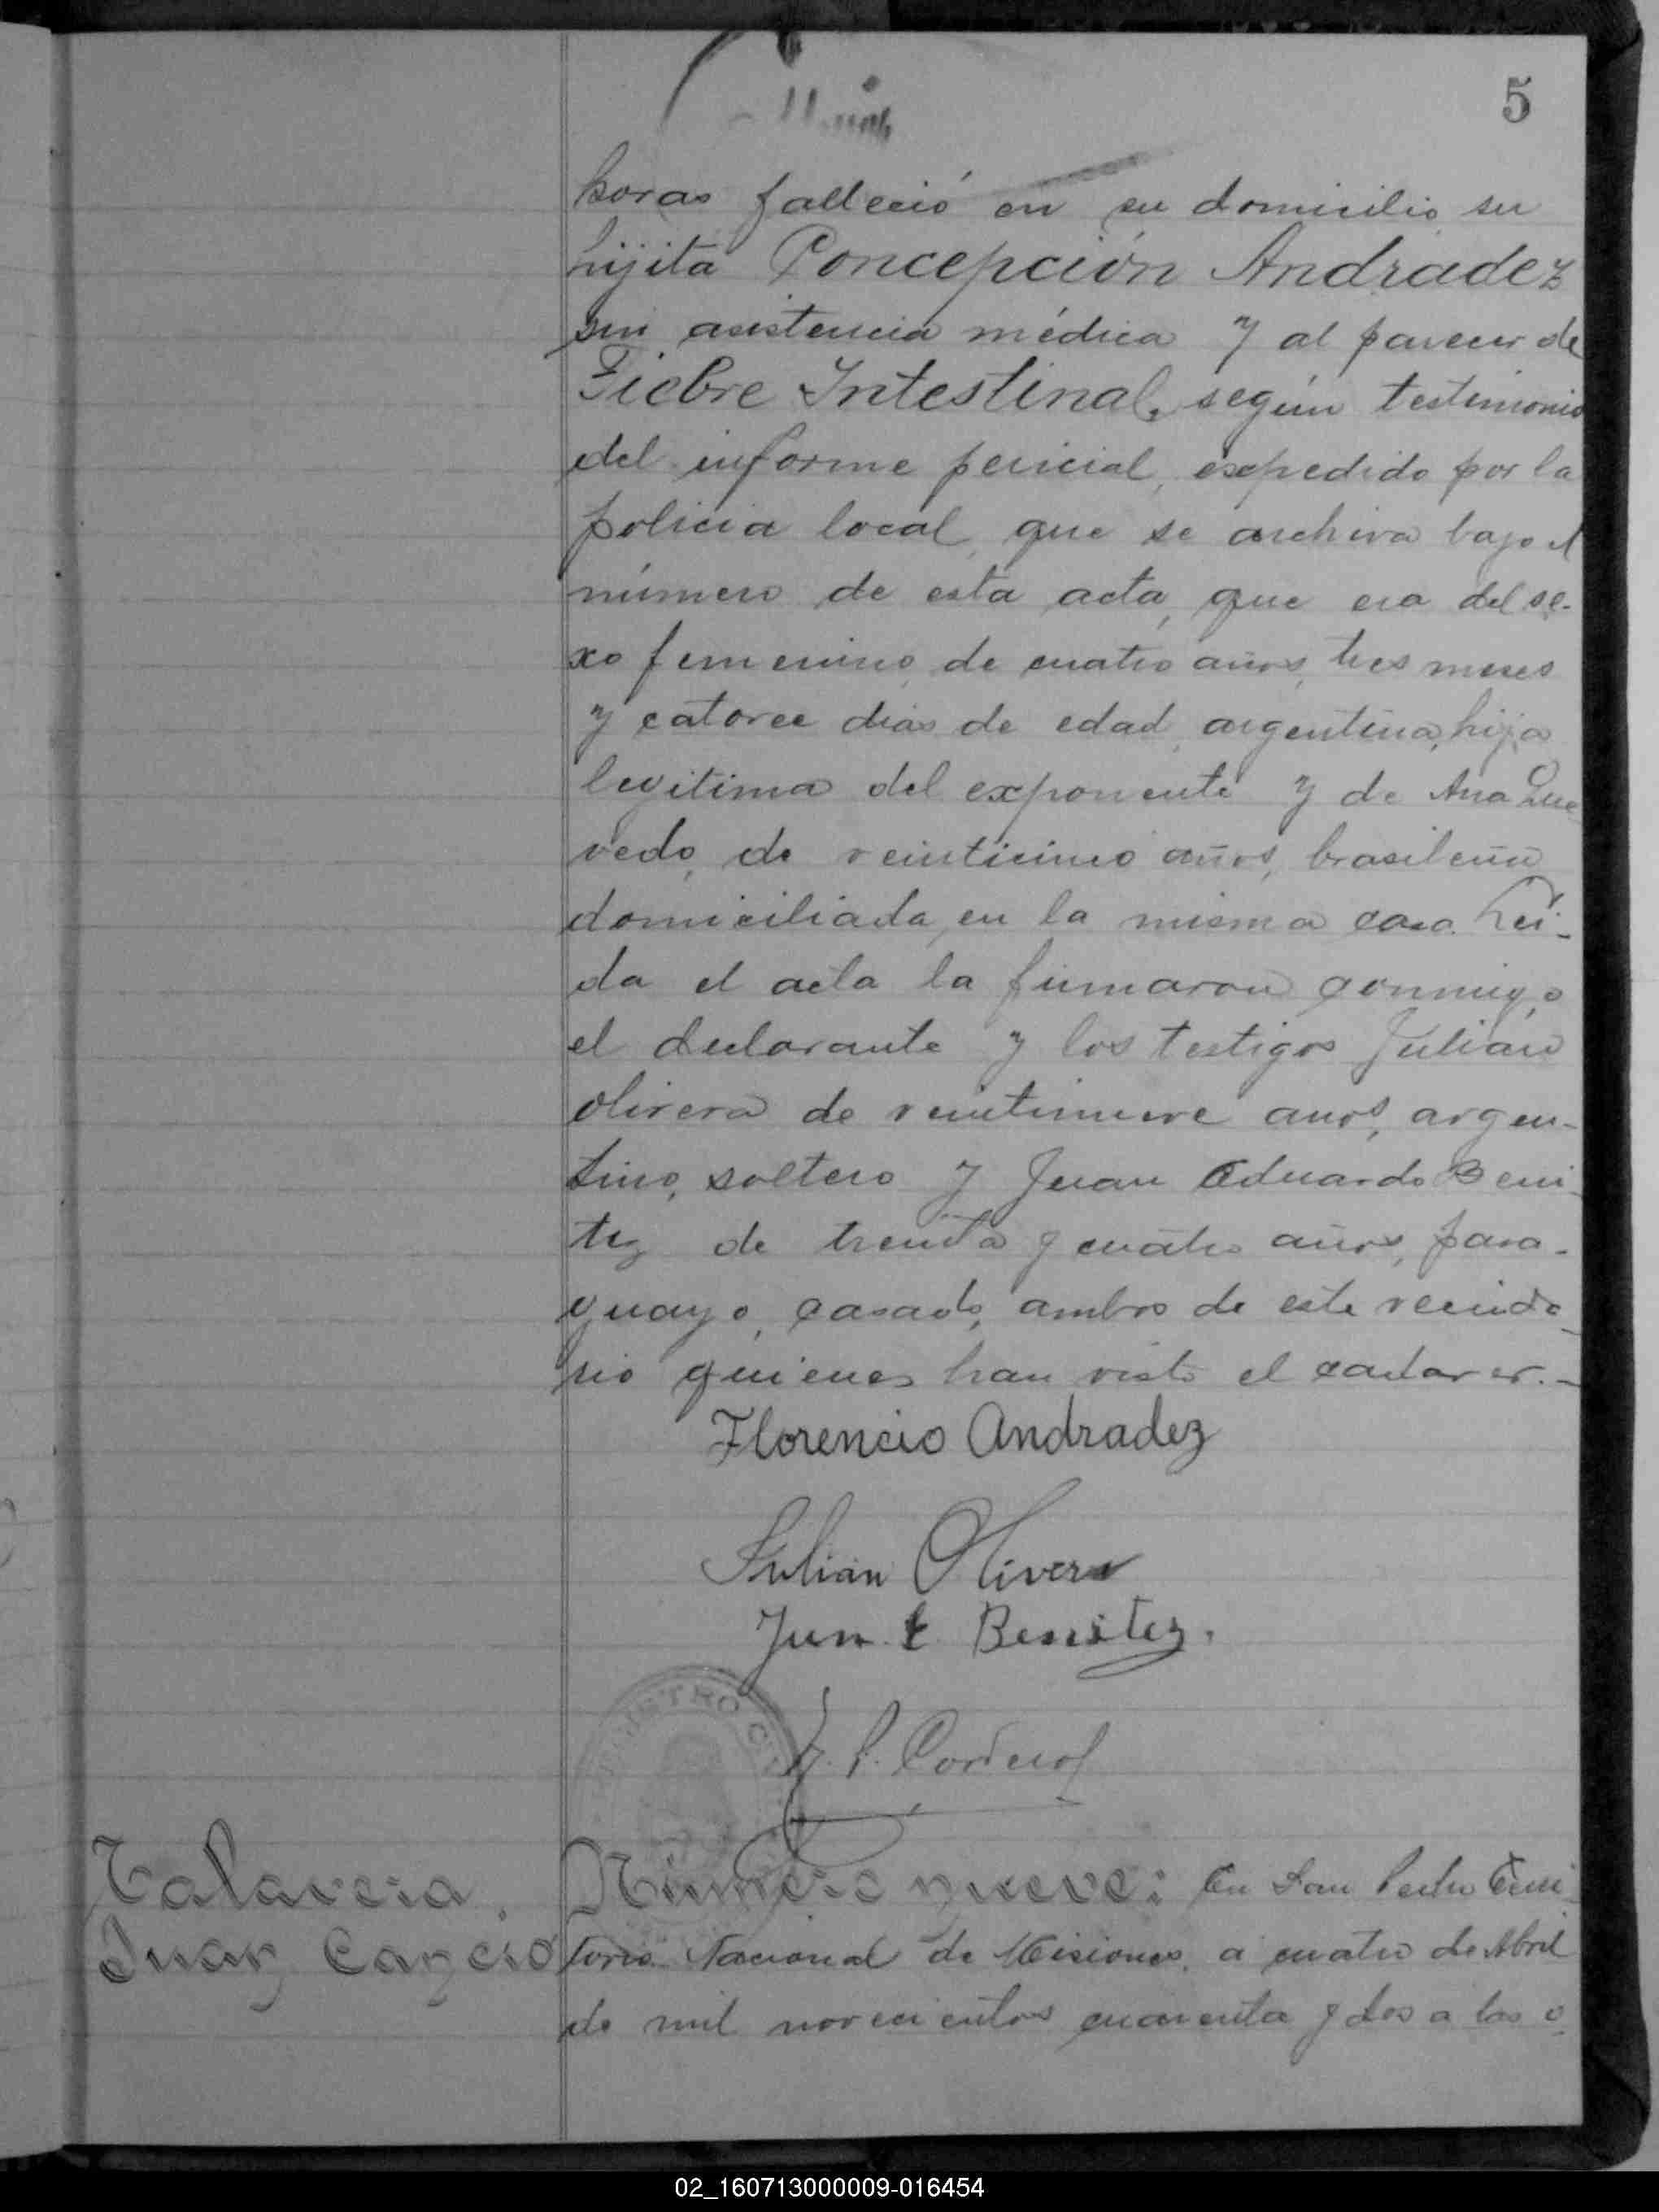 5
horas falleció en su domicilio su
hijita Concepción Andradez
sin asistencia médica y al parecer de
Fiebre Intestinal, según testimonio
del informe pericial, expedido por la
policia local, que se archiva bajo el
número de esta acta, que era del se-
xo femenino, de cuatro años, tres meses
y catorce dias de edad, argentina, hija
legitima del exponente y de Ana Que
vedo, de veinticinco años, brasileña
domiciliada, en la misma casa. Lei-
da el acta la firmaron conmigo
el declarante y los testigos Julián
Olivera de veintinueve años, argen-
tino, soltero y Juan Eduardo Beni
tez de treinta y cuatro años, para-
guayo, casado, ambos de este vecinda
rio quienes han visto el cadaver.-
Florencio Andradez
Julian Olivera
Jun E Benitez.
REGISTRO CI
P. Cordero
Talavera, Número nueve: En San Pedro Terri
Juan Cancio torio Nacional de Misiones, a cuatro de Abril
de mil novecientos cuarenta y dos a las o
02_160713000009-016454